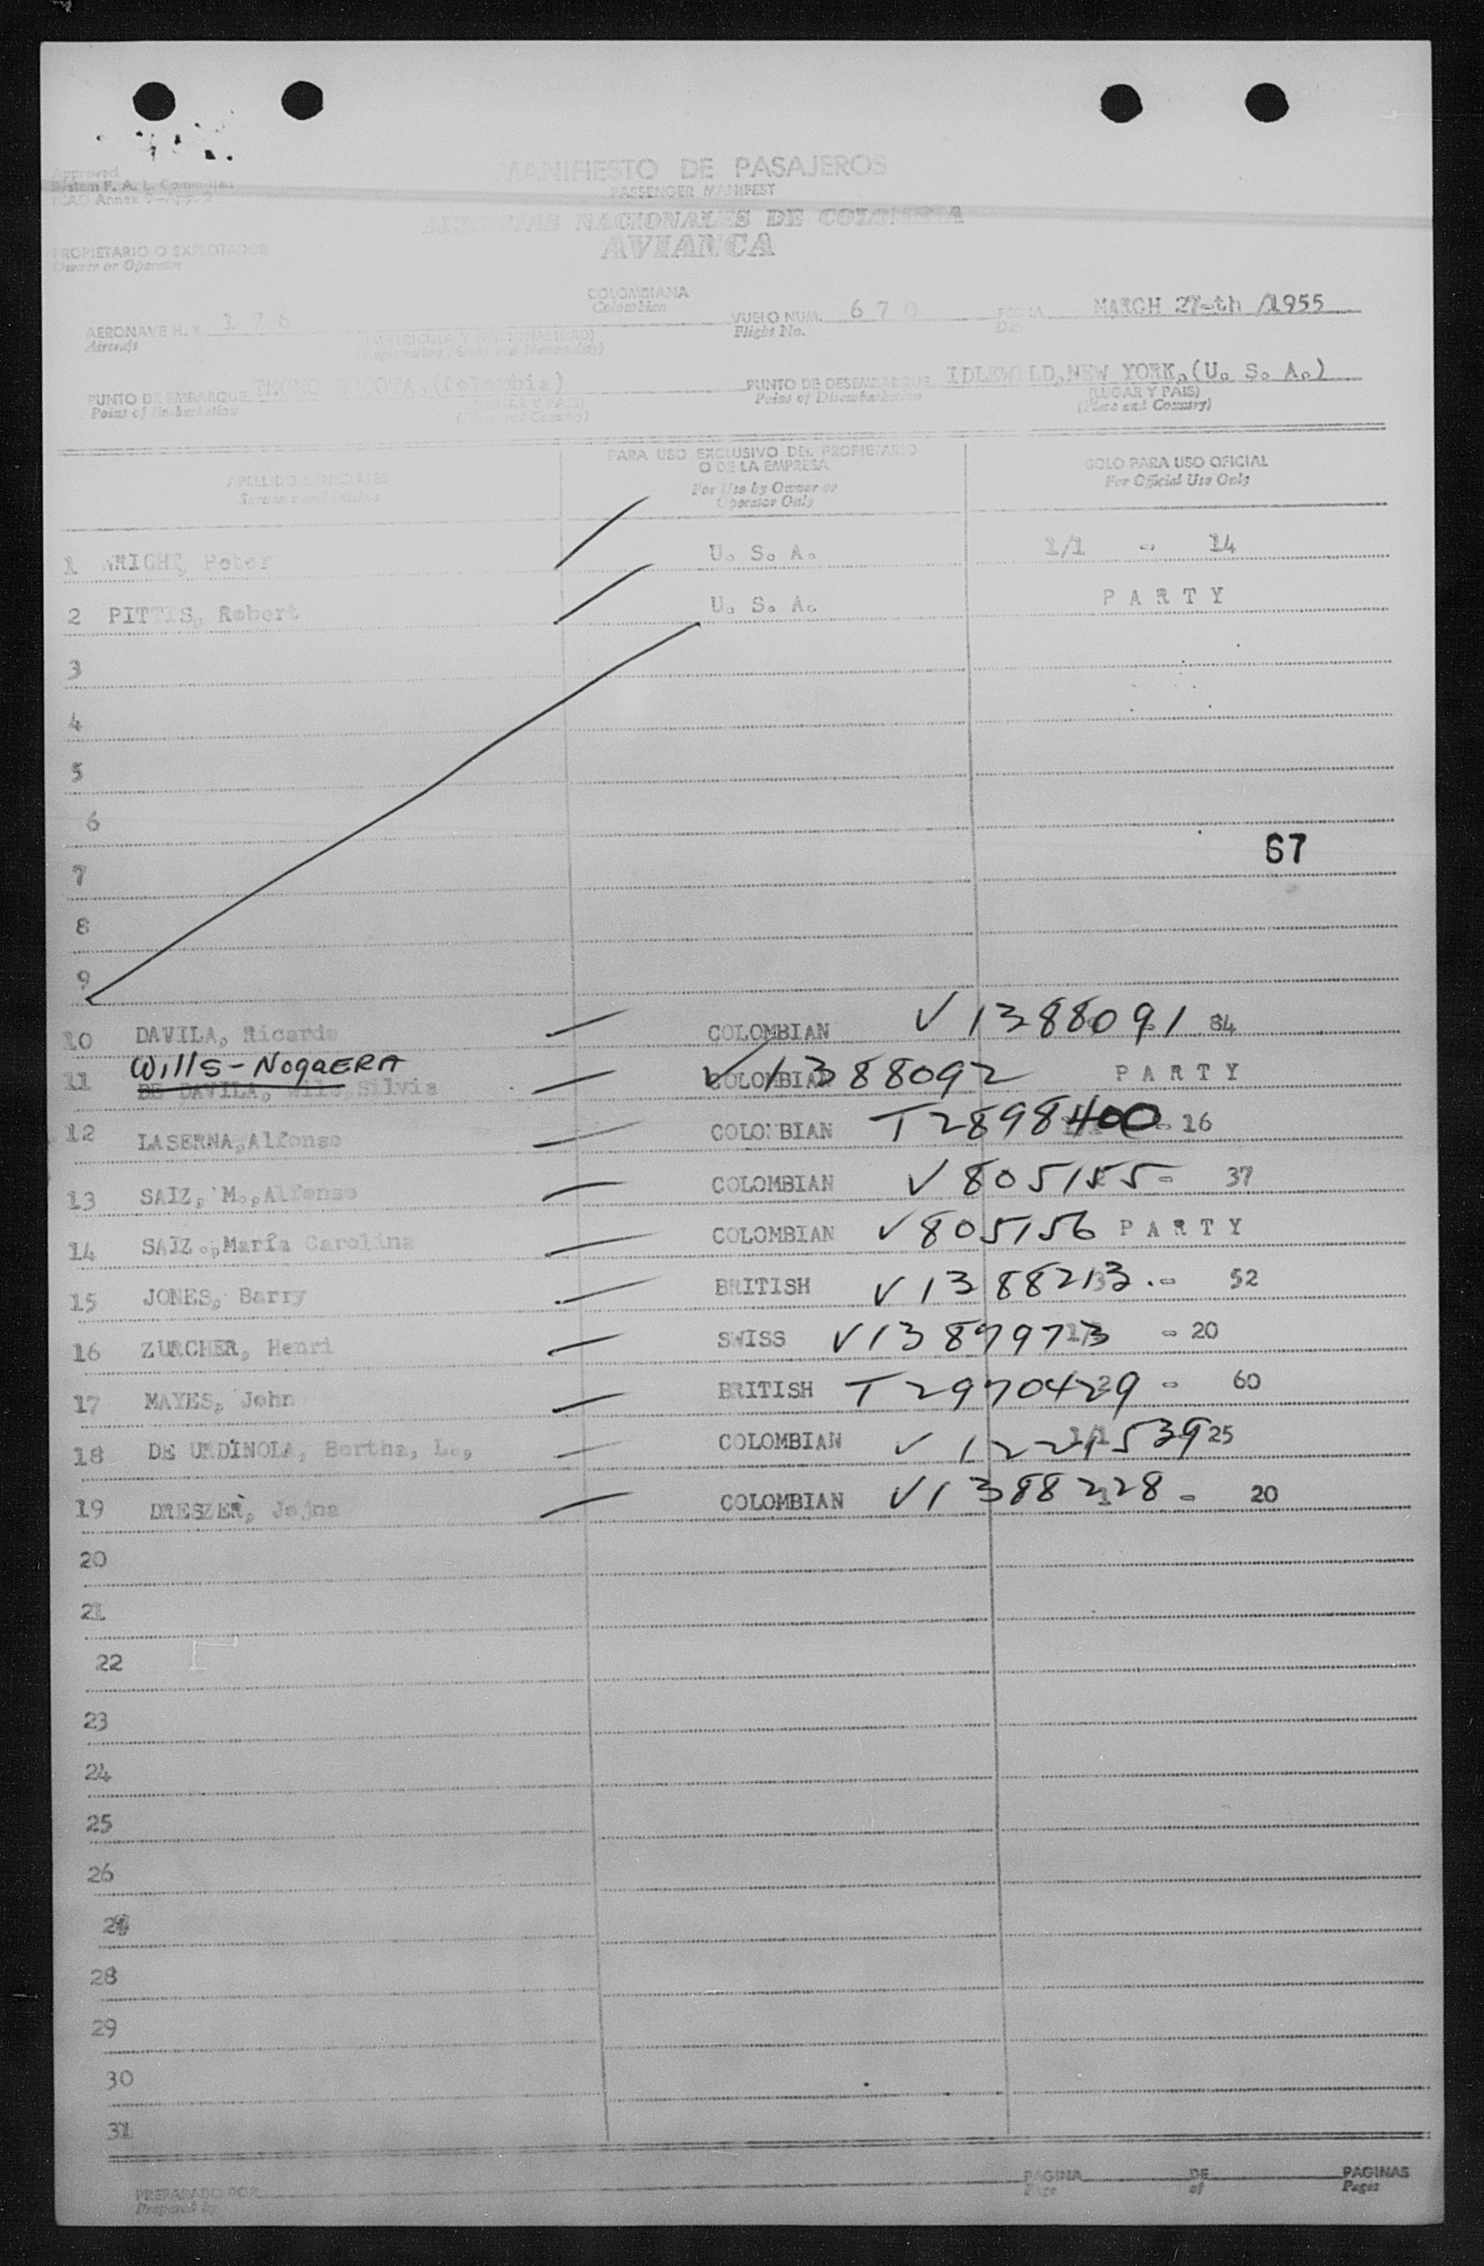 MANIFIESTO DE PASAJEROS
PASSENGER MANIFEST
Approved
System F. A. L. Committee
ICAO Annex
NACIONALES DE COLOMBIA
AVIANCA
PROPIETARIO O EXPLOTADOR
Owner or Operator
COLOMBIANA
Colombian
AERONAVE H. K. 176 VUELO NUM. 670 MARCH 27-th /1955
Aircraft Flight No.
PUNTO DE EMBARQUE BOGOTA,(Colombia) PUNTO DE DESEMBARQUE IDLEWILD,NEW YORK,(U. S. A.)
Point of Embarkation Point of Disembarkation (LUGAR Y PAIS)
(Place and Country)
PARA USO EXCLUSIVO DEL PROPIETARIO
O DE LA EMPRESA
For Use by Owner or
Operator Only
SOLO PARA USO OFICIAL
For Official Use Only
1 WRIGHT, Peter U. S. A. 1/1 - 14
2 PITTIS, Robert U. S. A. PARTY
3
4
5
6
67
7
8
9
10 DAVILA, Ricardo COLOMBIAN V1388091 84
Wills-NoguERA
11 DE DAVILA, Silvia COLOMBIAN V1388092 PARTY
12 LASERNA,Alfonso COLOMBIAN T2898400 - 16
13 SAIZ, M.,Alfonso COLOMBIAN V805155 - 37
14 SAIZ.,María Carolina COLOMBIAN V805156 PARTY
15 JONES, Barry BRITISH V1388213 - 52
16 ZURCHER, Henri SWISS V1387973 - 20
17 MAYES, John BRITISH T2970429 - 60
18 DE URDINOLA, Bertha, L., COLOMBIAN V1221539 25
19 DRESZER, Jajna COLOMBIAN V1388228 - 20
20
21
22
23
24
25
26
28
29
30
31
PREPARADO POR PAGINA DE PAGINAS
Prepared by Page of Pages